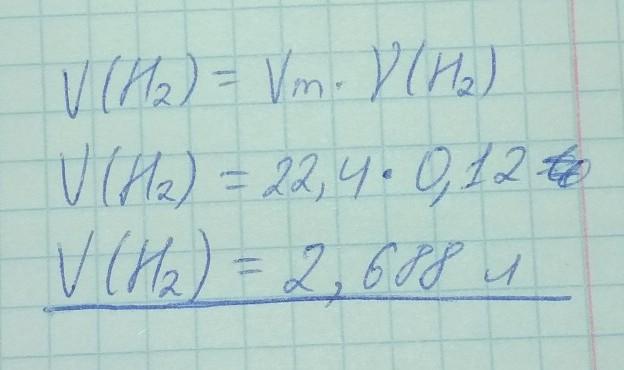 V(H₂) = Vm · ν(H₂)
V(H₂) = 22,4 · 0,12
V(H₂) = 2,688 л